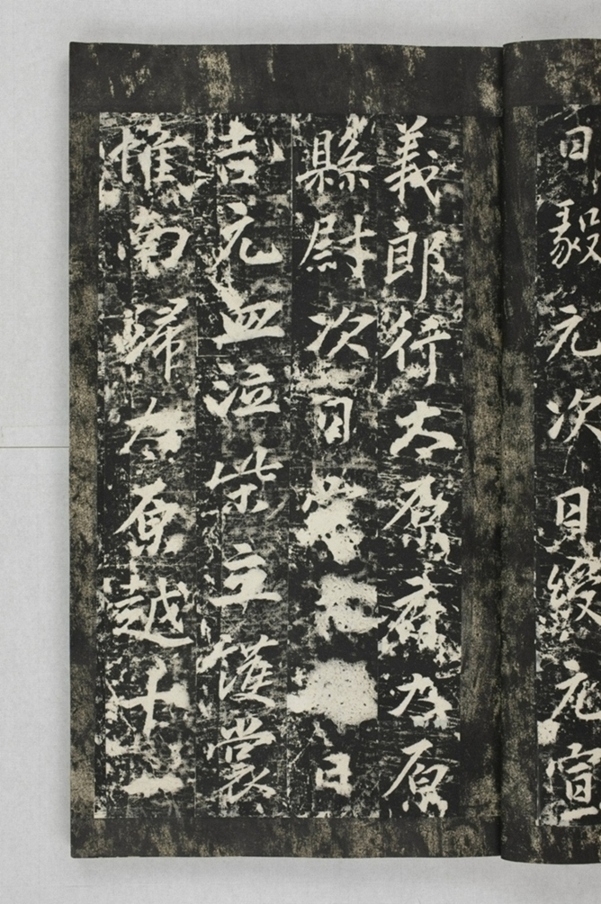 曰毅元次曰綬元宣
義郎行太原府太原
縣尉次曰日
吉元血泣柴立護裳
帷南歸太原越十一